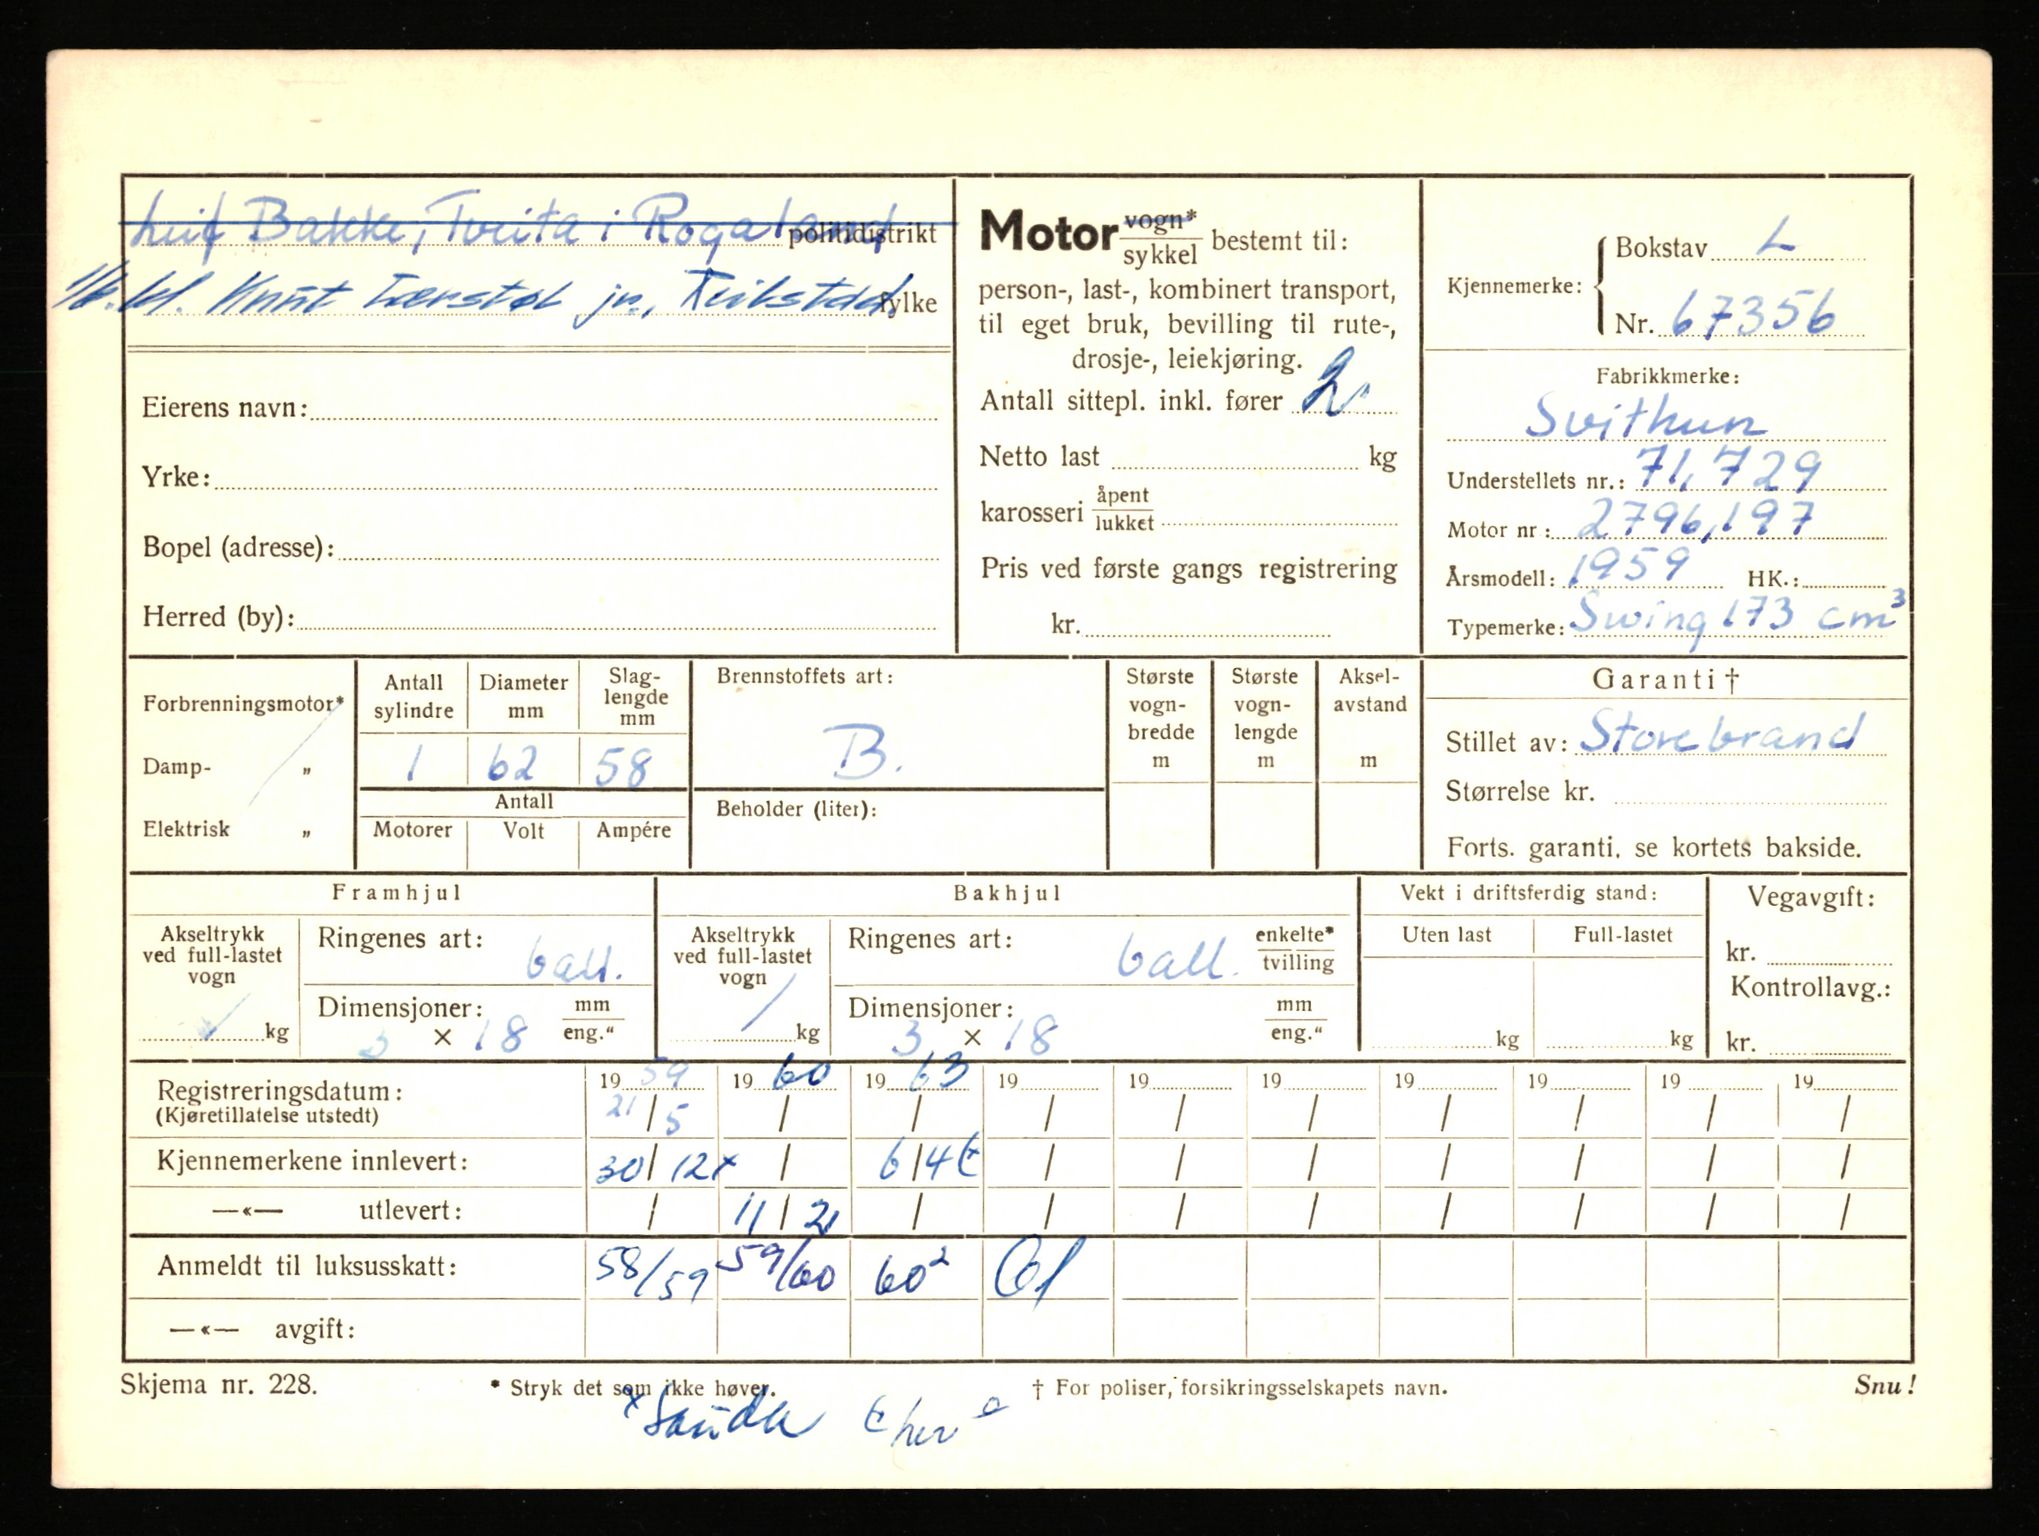 Leif Bakke, Tveita i Rogaland politidistrikt
Knut jr., fylke
Eierens navn:
Yrke:
Bopel (adresse):
Herred (by):
Motor vogn*/sykkel bestemt til:
person-, last-, kombinert transport,
til eget bruk, bevilling til rute-,
drosje-, leiekjøring.
Antall sittepl. inkl. fører 2
Netto last kg
karosseri åpent/lukket
Pris ved første gangs registrering
kr.
Kjennemerke: Bokstav L
Nr. 67356
Fabrikkmerke:
Svithun
Understellets nr.: 71,729
Motor nr: 2796,197
Årsmodell: 1959 HK.:
Typemerke: Swing 173 cm³
Forbrenningsmotor*
Damp- „
Elektrisk „
Antall sylindre Diameter mm Slag-lengde mm
1 62 58
Antall
Motorer Volt Ampére
Brennstoffets art:
B.
Beholder (liter):
Største vogn-bredde m
Største vogn-lengde m
Aksel-avstand m
Garanti †
Stillet av: Storebrand
Størrelse kr.
Forts. garanti, se kortets bakside.
Framhjul
Akseltrykk
ved full-lastet
vogn
kg
Ringenes art: ball.
Dimensjoner: mm/eng."
3 × 18
Bakhjul
Akseltrykk
ved full-lastet
vogn
kg
Ringenes art: ball. enkelte*/tvilling
Dimensjoner: mm/eng."
3 × 18
Vekt i driftsferdig stand:
Uten last Full-lastet
kg kg
Vegavgift:
kr.
Kontrollavg.:
kr.
Registreringsdatum: 1959 1960 1963 19 19 19 19 19 19 19
(Kjøretillatelse utstedt) 21/5 / / / / / / / / /
Kjennemerkene innlevert: 30/12x / 6/4 / / / / / / /
—«— utlevert: / 11/2 / / / / / / / /
Anmeldt til luksusskatt: 58/59 59/60 60² 61
—«— avgift:
Skjema nr. 228. * Stryk det som ikke høver. † For poliser, forsikringsselskapets navn. Snu!
x Sauda